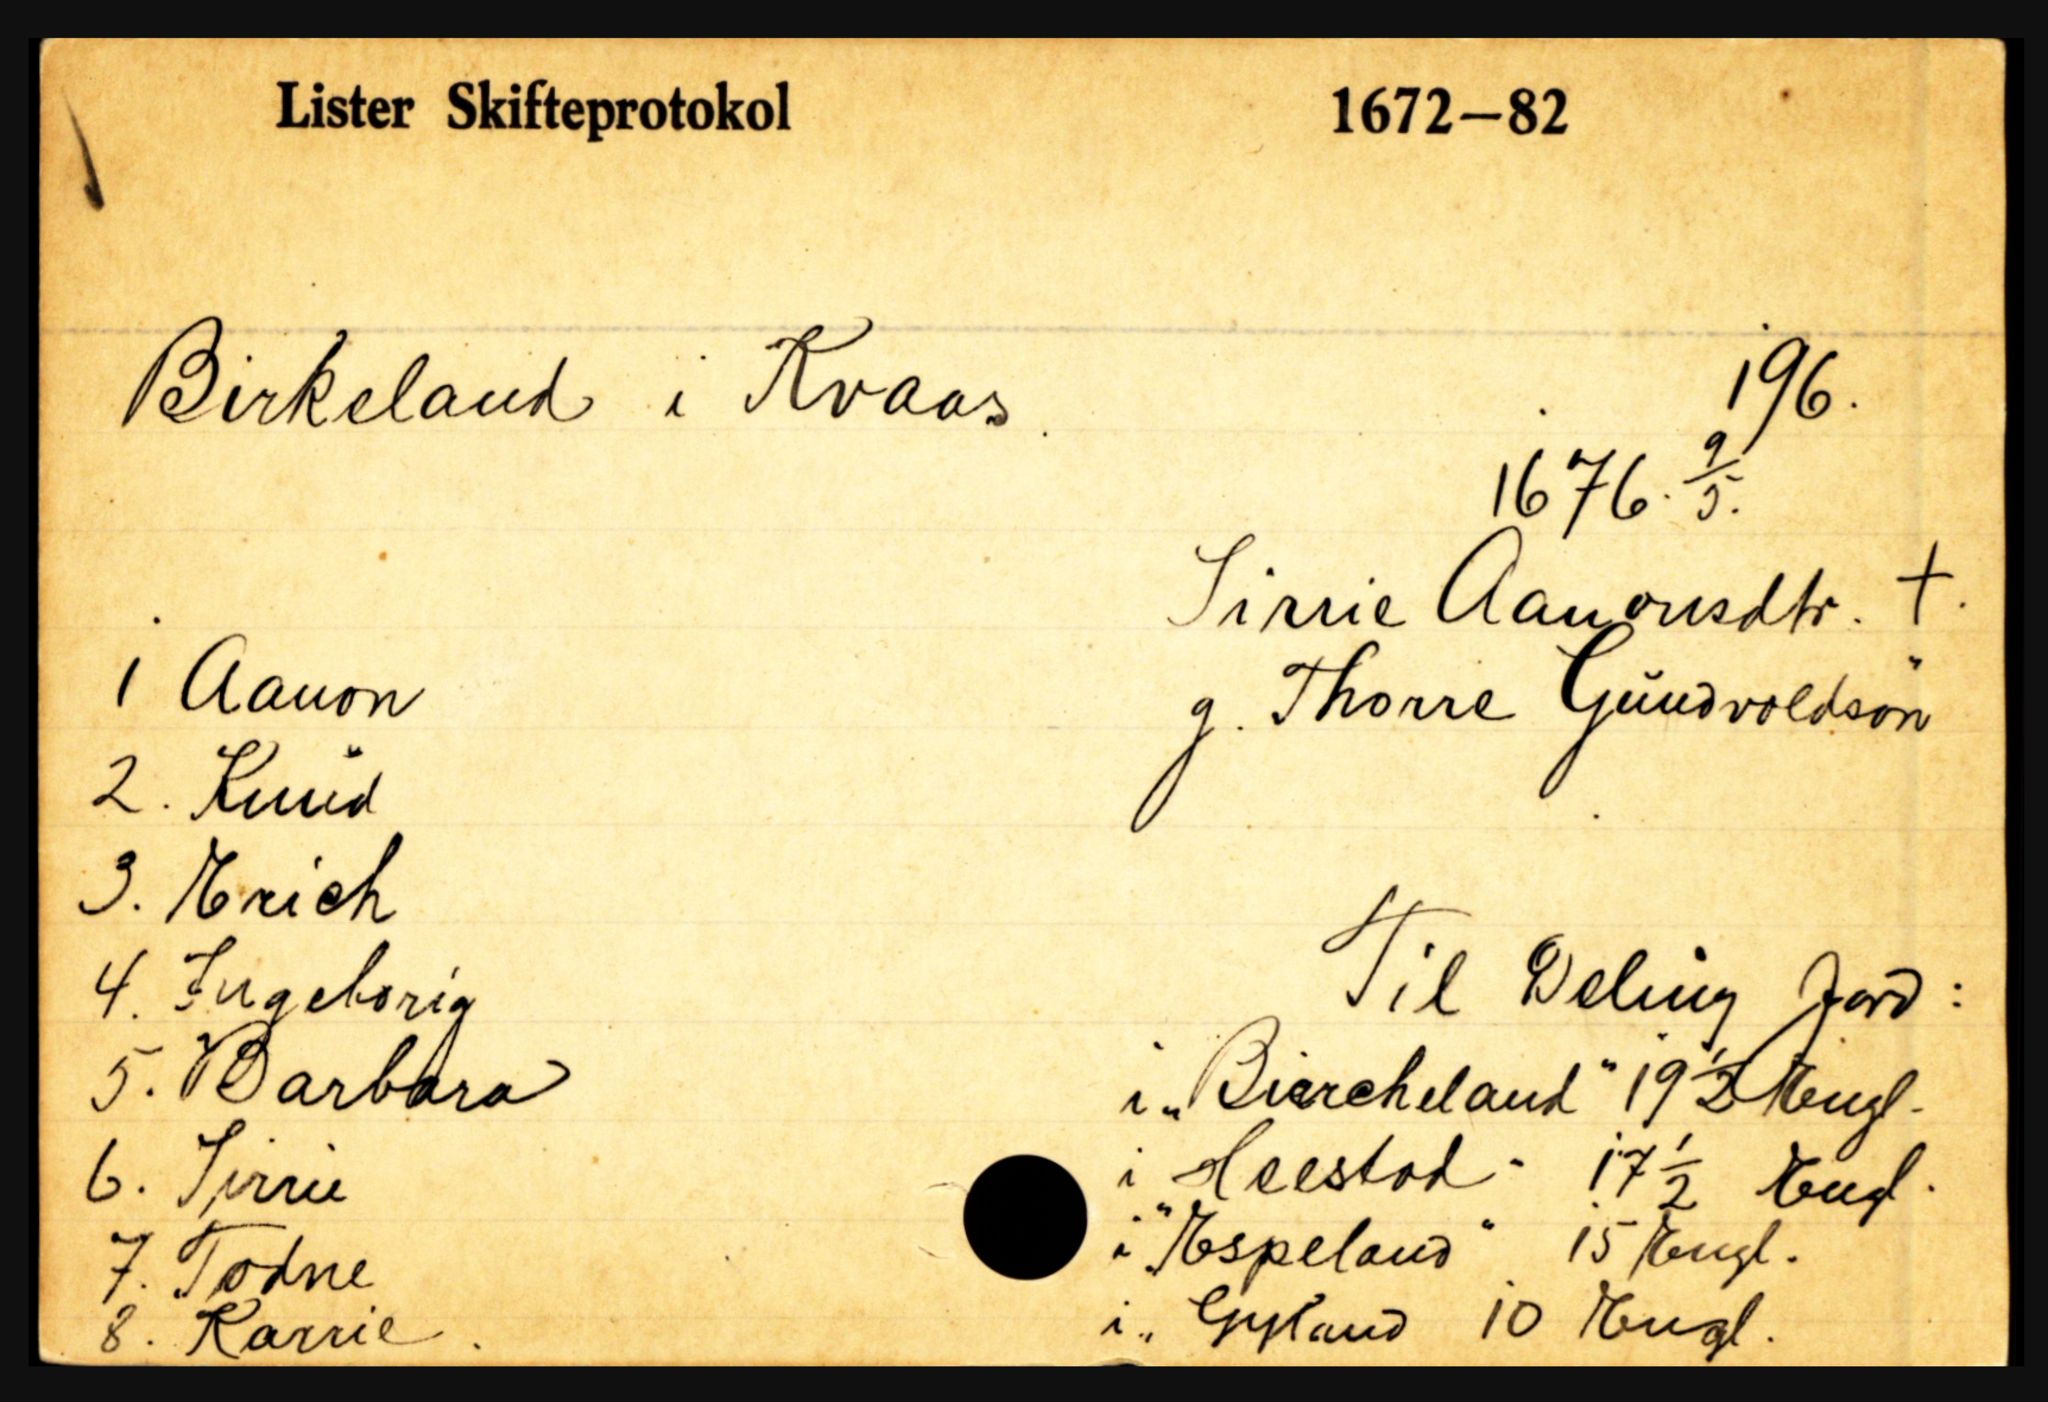 Lister Skifteprotokol 1672—82
Birkeland i Kvaas.
196.
1676. 9/5.
Sirrie Aanonsdtr. †.
g. Thorre Gŭndvoldsön
1 Aanon
2. Knŭd
3. Erich
4. Ingeborig
5. Barbara
6. Sirrie
7. Todne
8. Karrie.
Til Deling Jord:
i „Biercheland" 19 1/2 Engl.
i Heestod - 17 1/2 Engl.
i „Espeland" 15 Engl.
i „Gyland 10 Engl.